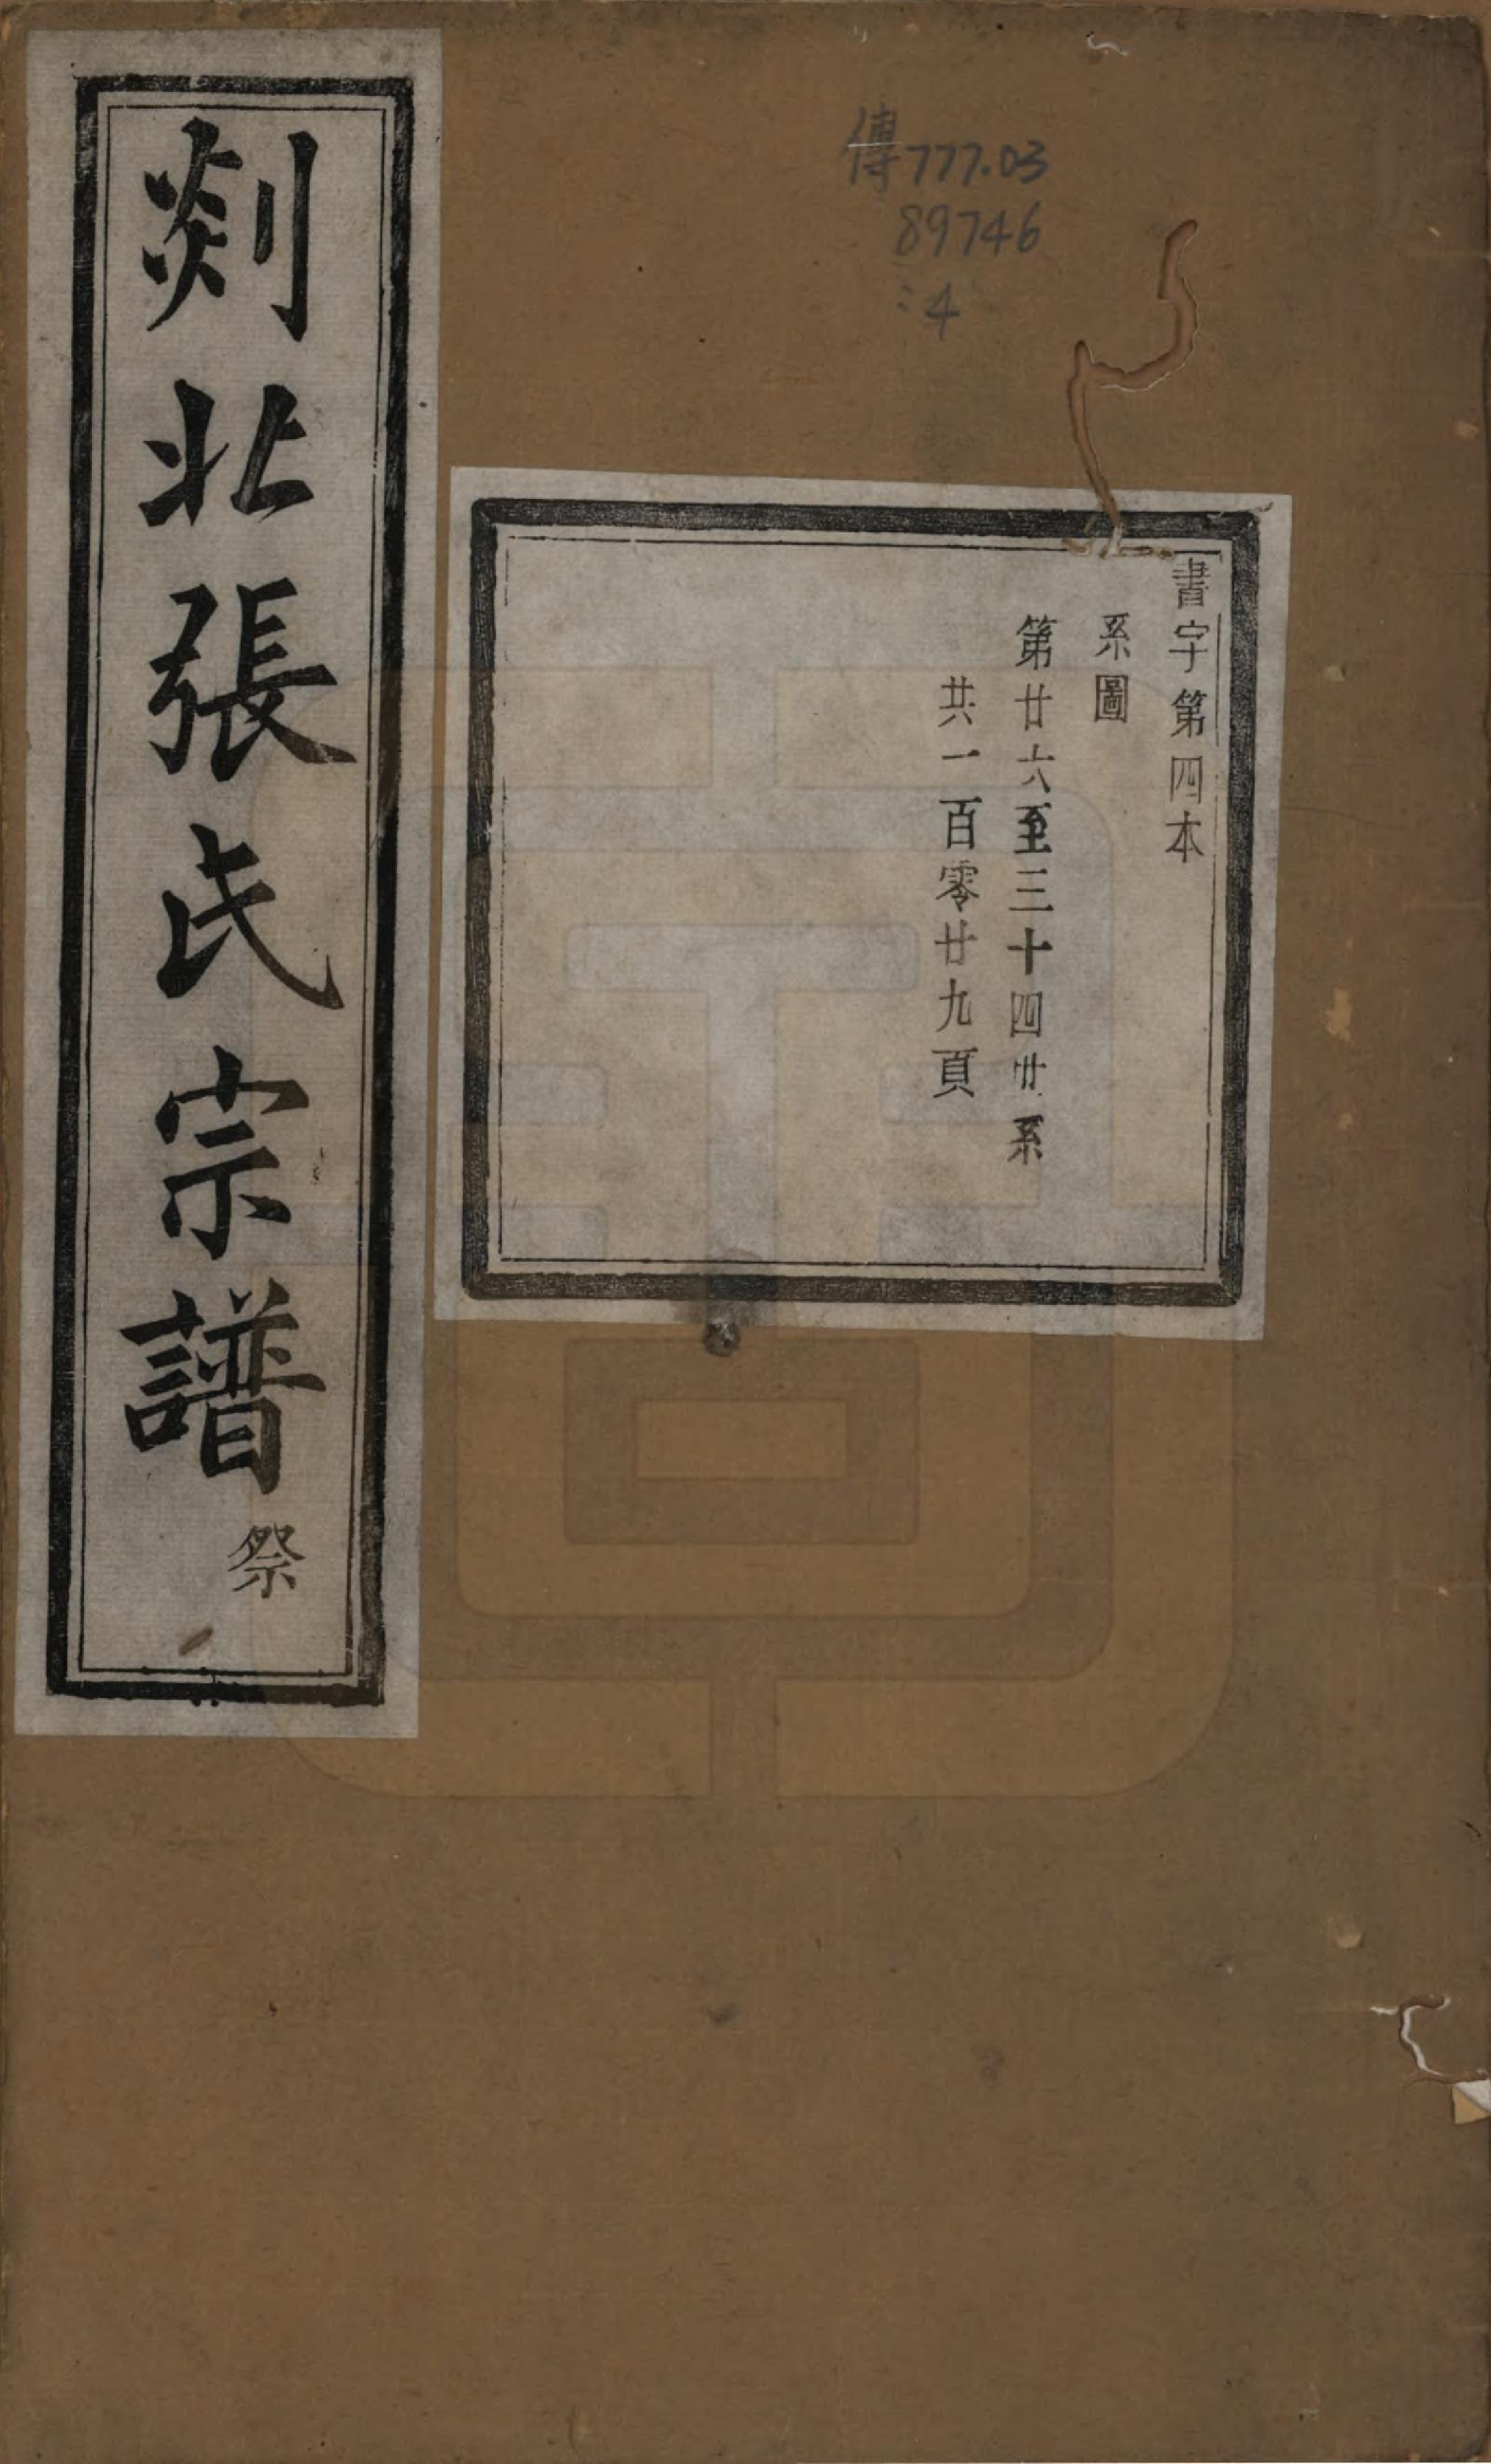 傳777.03
89746
:4
書字第四本
系圖
第廿六至三十四世系
共一百零廿九頁
剡北張氏宗譜
祭